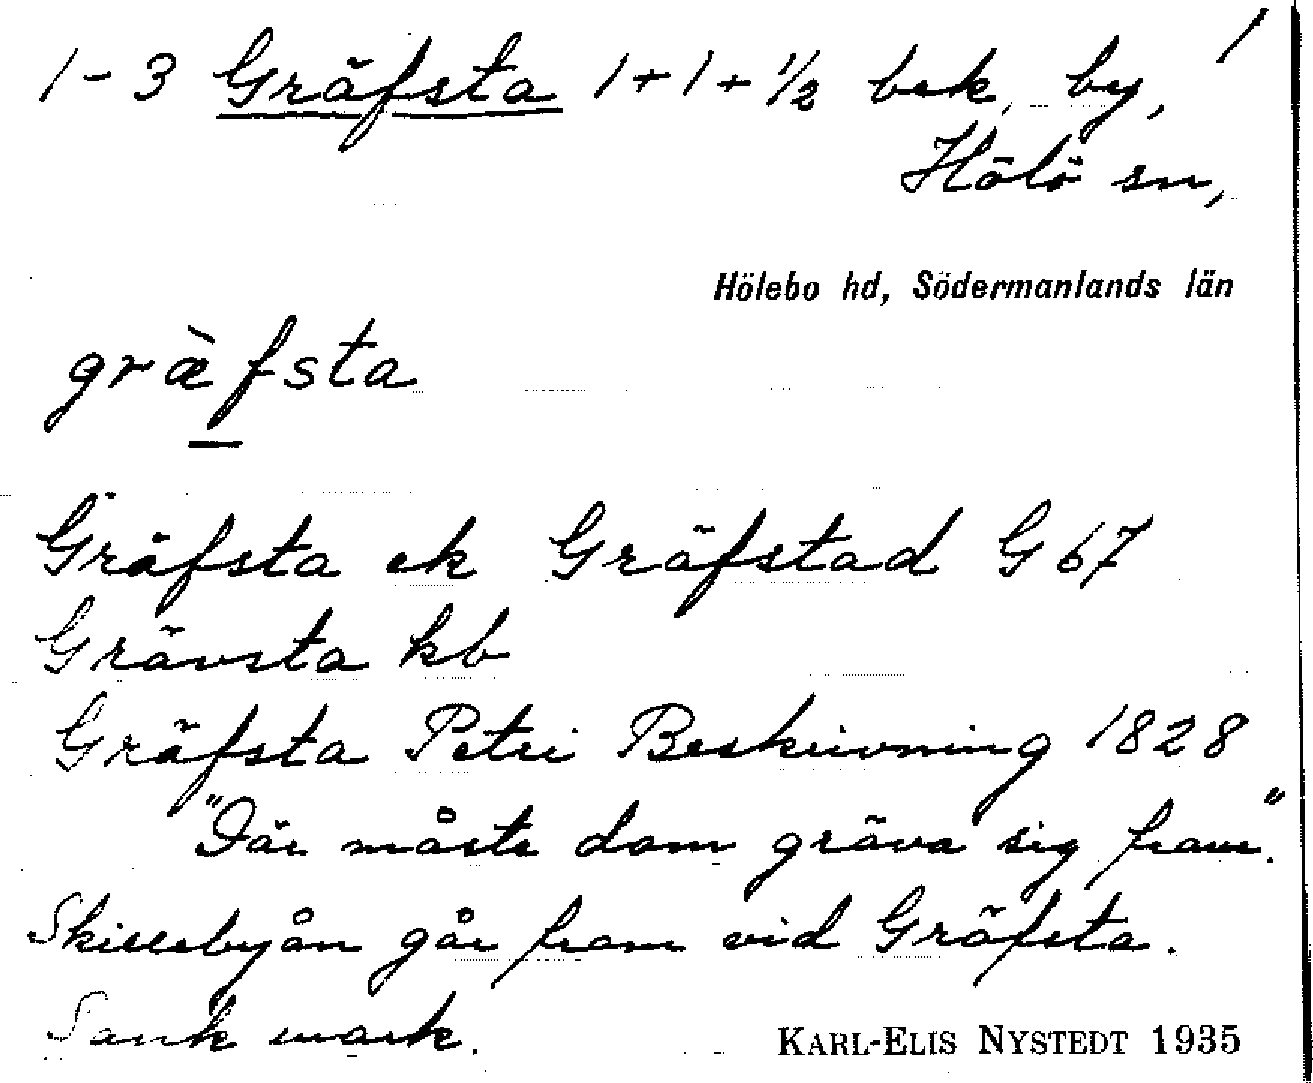 1-3 Gräfsta 1+1+½ bek, by, 1
Hölö sn,
Hölebo hd, Södermanlands län
græ̀fsta
Gräfsta ek Gräfstad G 67
Grävsta kb
Gräfsta Petri Beskrivning 1828
"Där måste dom gräva sig fram."
Skillebyån går fram vid Gräfsta.
Sank mark.
KARL-ELIS NYSTEDT 1935